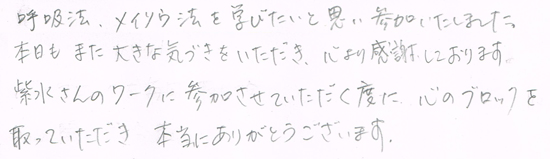 呼吸法、メイソウ法を学びたいと思い参加いたしました。
本日もまた大きな気づきをいただき、心より感謝しております
紫水さんのワークに参加させていただく度に、心のブロックを
取っていただき 本当にありがとうございます.